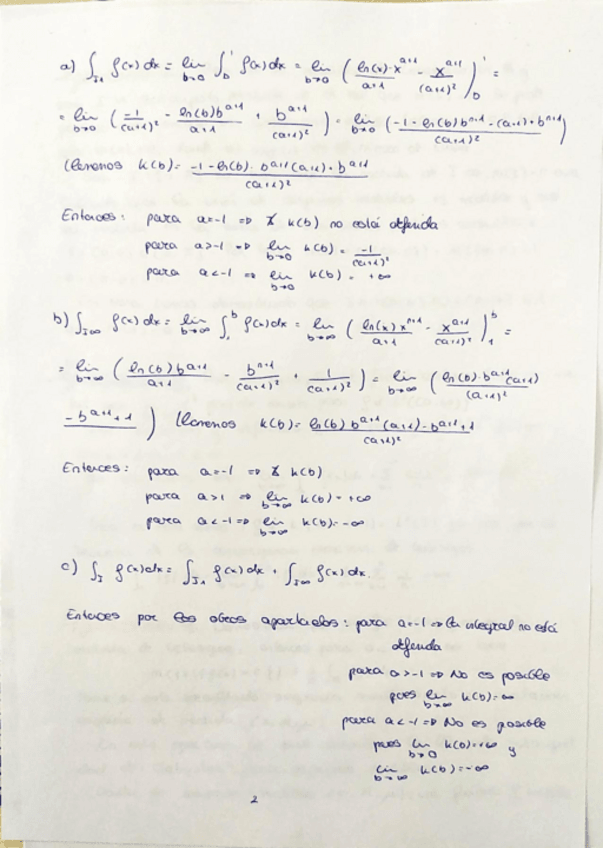 a) ∫_{I1} f(x) dx = lim_{b→0} ∫_b^1 f(x) dx = lim_{b→0} ( ln(x)·x^{a+1}/(a+1) - x^{a+1}/(a+1)² )_b^1 =
= lim_{b→0} ( -1/(a+1)² - ln(b) b^{a+1}/(a+1) + b^{a+1}/(a+1)² ) = lim_{b→0} ( (-1 - ln(b) b^{a+1}·(a+1) + b^{a+1})/(a+1)² )
llamemos K(b) = (-1 - ln(b)· b^{a+1}(a+1) + b^{a+1})/(a+1)²
Entonces: para a=-1 ⇒ ∄ K(b) no está definida
para a>-1 ⇒ lim_{b→0} K(b) = -1/(a+1)²
para a<-1 ⇒ lim_{b→0} K(b) = +∞
b) ∫_{I∞} f(x) dx = lim_{b→∞} ∫_1^b f(x) dx = lim_{b→∞} ( ln(x) x^{a+1}/(a+1) - x^{a+1}/(a+1)² )_1^b =
= lim_{b→∞} ( ln(b) b^{a+1}/(a+1) - b^{a+1}/(a+1)² + 1/(a+1)² ) = lim_{b→∞} ( ln(b)·b^{a+1}(a+1)/(a+1)²
-b^{a+1}+1 ) llamemos K(b) = (ln(b) b^{a+1}(a+1) - b^{a+1}+1)/(a+1)²
Entonces: para a=-1 ⇒ ∄ K(b)
para a>1 ⇒ lim_{b→∞} K(b) = +∞
para a<-1 ⇒ lim_{b→∞} K(b) = -∞
c) ∫_I f(x) dx = ∫_{I1} f(x) dx + ∫_{I∞} f(x) dx.
Entonces por los otros apartados: para a=-1 ⇒ la integral no está
definida
para a>-1 ⇒ No es posible
pues lim_{b→∞} K(b) = ∞
para a<-1 ⇒ No es posible
pues lim_{b→0} K(b) = +∞ y
lim_{b→∞} K(b) = -∞
2